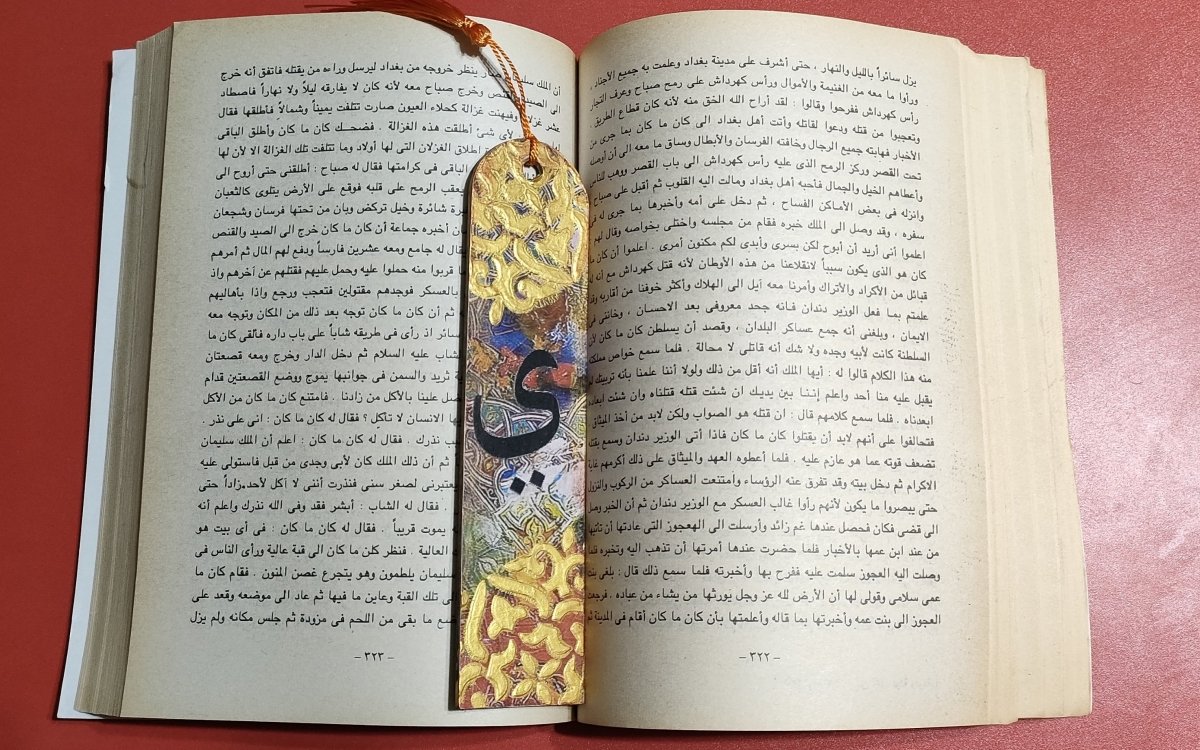 يزل سائراً بالليل والنهار ، حتى أشرف على مدينة بغداد وعلمت به جميع الأجناد ،
ورأوا ما معه من الغنيمة والأموال ورأس كهرداش على رمح صباح وعرف التجار
رأس كهرداش ففرحوا وقالوا : لقد أراح الله الخق منه لأنه كان قطاع الطريق .
وتعجبوا من قتله ودعوا لقاتله وأتت أهل بغداد الى كان ما كان بما جرى من
الأخبار فهابته جميع الرجال وخافته الفرسان والأبطال وساق ما معه الى أن أوصله
تحت القصر وركز الرمح الذى عليه رأس كهرداش الى باب القصر ووهب للناس
وأعطاهم الخيل والجمال فأحبه أهل بغداد ومالت اليه القلوب ثم أقبل على صباح
وانزله فى بعض الأماكن الفساح ، ثم دخل على أمه وأخبرها بما جرى له فى
سفره ، وقد وصل الى الملك خبره فقام من مجلسه واختلى بخواصه وقال لهم :
اعلموا أنى أريد أن أبوح لكن بسرى وأبدى لكم مكنون أمرى . اعلموا أن كان ما
كان هو الذى يكون سبباً لانقلاعنا من هذه الأوطان لأنه قتل كهرداش مع أنه له
قبائل من الأكراد والأتراك وأمرنا معه آيل الى الهلاك وأكثر خوفنا من أقاربه وقد
علمتم بما فعل الوزير دندان فـانه جحد معروفى بعد الاحسان ، وخانتى فى
الايمان ، وبلغنى أنه جمع عساكر البلدان ، وقصد أن يسلطن كان ما كان لأن
السلطنة كانت لأبيه وجده ولا شك أنه قاتلى لا محالة . فلما سمع خواص مملكته
منه هذا الكلام قالوا له : أيها الملك أنه أقل من ذلك ولولا أننا علمنا بأنه تربيتك لم
يقبل عليه منا أحد واعلم إننا بين يديك ان شئت قتله قتلناه وان شئت ابعاده
ابعدناه . فلما سمع كلامهم قال : ان قتله هو الصواب ولكن لابد من أخذ الميثاق
فتحالفوا على أنهم لابد أن يقتلوا كان ما كان فاذا أتى الوزير دندان وسمع بقتله
تضعف قوته عما هو عازم عليه . فلما أعطوه العهد والميثاق على ذلك أكرمهم غاية
الاكرام ثم دخل بيته وقد تفرق عنه الرؤساء وأمتنعت العساكر من الركوب والنزول
حتى يبصروا ما يكون لأنهم رأوا غالب العسكر مع الوزير دندان ثم أن الخبر وصل
الى قضى فكان فحصل عندها غم زائد وأرسلت الى الهعجوز التى عادتها أن تأتيها
من عند ابن عمها بالأخبار فلما حضرت عندها أمرتها أن تذهب اليه وتخبره فلما
وصلت اليه العجوز سلمت عليه ففرح بها وأخبرته فلما سمع ذلك قال : بلغى بنت
عمى سلامى وقولى لها أن الأرض لله عز وجل يورثها من يشاء من عباده . فرجعت
العجوز الى بنت عمه وأخبرتها بما قاله وأعلمتها بأن كان ما كان أقام فى المدينة ثم
– ٣٢٢ –
أن الملك ينظر خروجه من بغداد ليرسل وراءه من يقتله فاتفق أنه خرج
الى الصيد والقنص وخرج صباح معه لأنه كان لا يفارقه ليلاً ولا نهاراً فاصطاد
عشر غزلان وفيهنت غزالة كحلاء العيون صارت تتلفت يميناً وشمالاً فأطلقها فقال
لأى شئ أطلقت هذه الغزالة . فضحك كان ما كان وأطلق الباقى
اطلاق الغزلان التى لها أولاد وما تتلفت تلك الغزالة الا لأن لها
الباقى فى كرامتها فقال له صباح : أطلقنى حتى أروح الى
بعقب الرمح على قلبه فوقع على الأرض يتلوى كالثعبان
شائرة وخيل تركض وبان من تحتها فرسان وشجعان
أن أخبره جماعة أن كان ما كان خرج الى الصيد والقنص
قال له جامع ومعه عشرين فارساً ودفع لهم المال ثم أمرهم
قربوا منه حملوا عليه وحمل عليهم فقتلهم عن آخرهم واذ
بالعسكر فوجدهم مقتولين فتعجب ورجع واذا بأهاليهم
ثم أن كان ما كان توجه بعد ذلك من المكان وتوجه معه
سائر اذ رأى فى طريقه شاباً على باب داره فألقى كان ما
الشاب عليه السلام ثم دخل الدار وخرج ومعه قصعتان
ثريد والسمن فى جوانبها يموج ووضع القصعتين قدام
علينا بالأكل من زادنا . فامتنع كان ما كان من الأكل
الانسان لا تأكل ؟ فقال له كان ما كان : انى على نذر .
نذرك . فقال له كان ما كان : اعلم أن الملك سليمان
ثم أن ذلك الملك كان لأبى وجدى من قبل فاستولى عليه
يعتبرنى لصغر سنى فنذرت أننى لا آكل لأحد زاداً حتى
فقال له الشاب : أبشر فقد وفى الله نذرك واعلم أنه
يموت قريباً . فقال له كان ما كان : فى أى بيت هو
العالية . فنظر كلن ما كان الى قبة عالية ورأى الناس فى
سليمان يلطمون وهو يتجرع غصن المنون . فقام كان ما
تلك القبة وعاين ما فيها ثم عاد الى موضعه وقعد على
ما بقى من اللحم فى مزودة ثم جلس مكانه ولم يزل
– ٣٢٣ –
ي